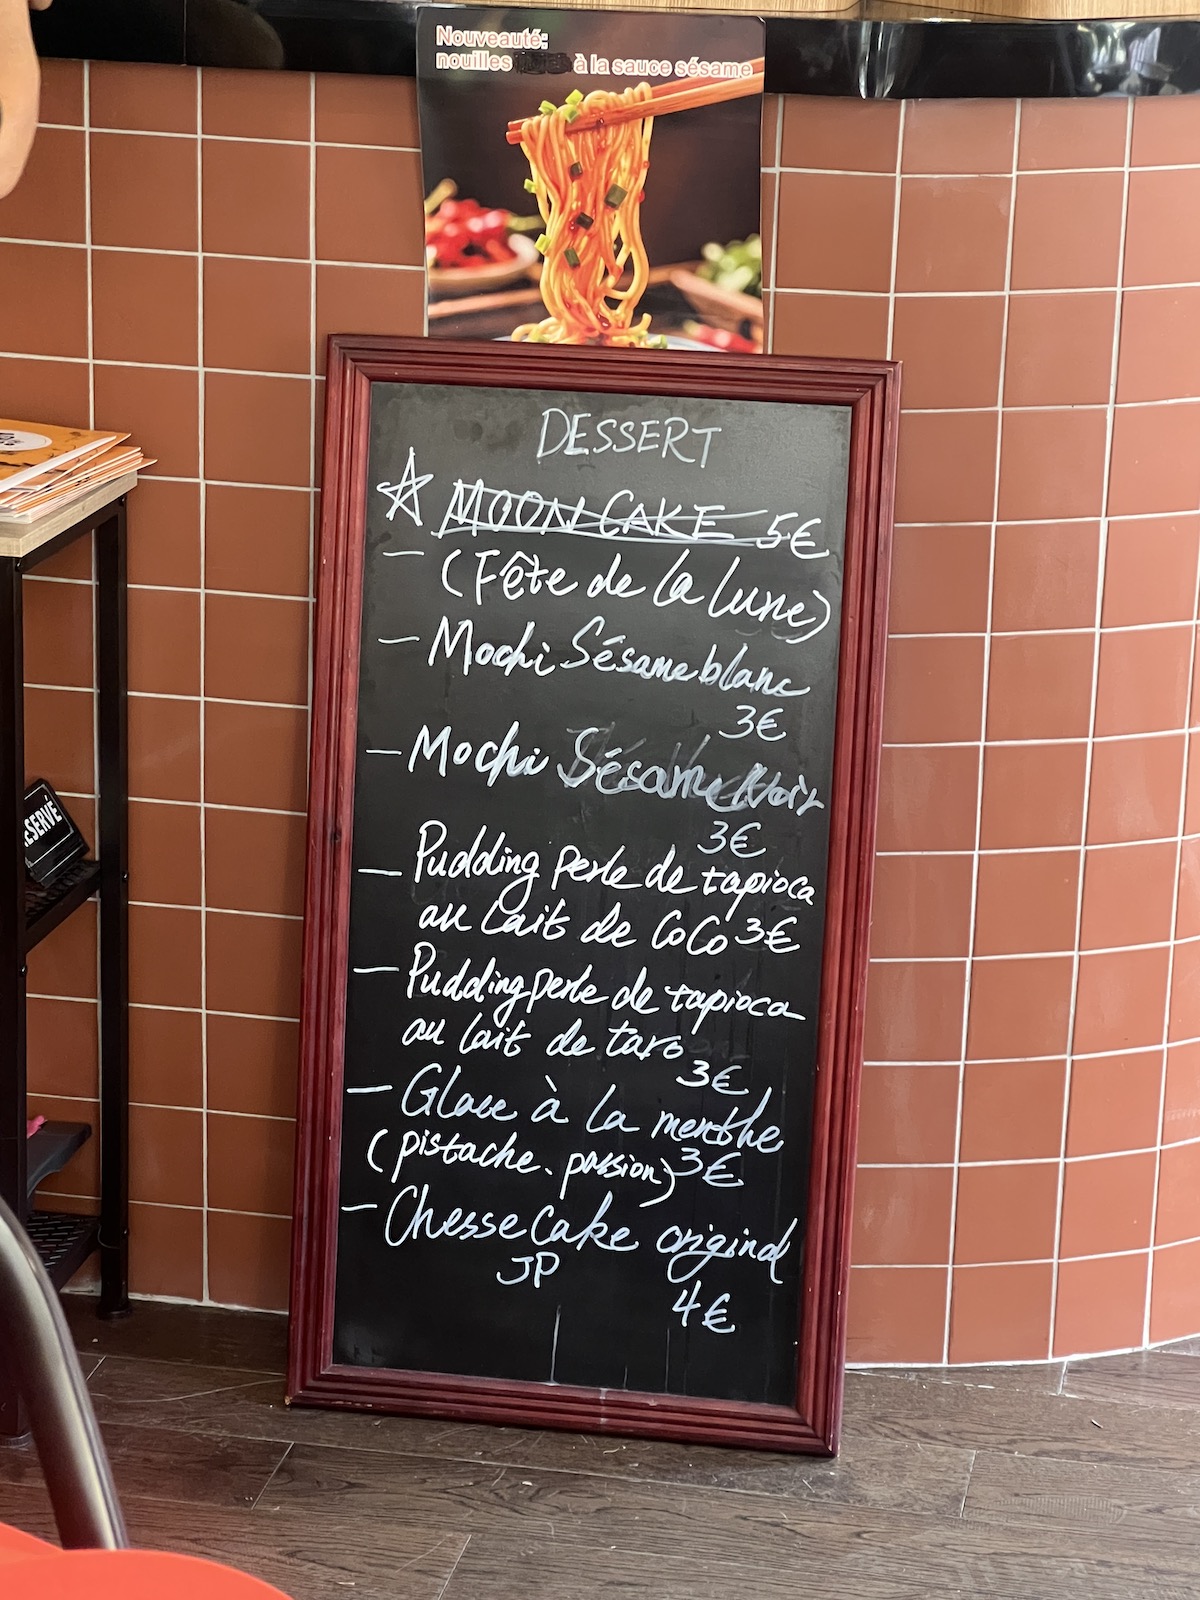 Nouveauté:
nouilles à la sauce sésame
DESSERT
☆ MOON CAKE 5€
— (Fête de la lune)
— Mochi Sésame blanc
3€
— Mochi Sésame Noir
3€
— Pudding perle de tapioca
au lait de CoCo 3€
— Pudding perle de tapioca
au lait de taro
3€
— Glace à la menthe
(pistache. passion) 3€
— Chesse Cake original
JP
4€